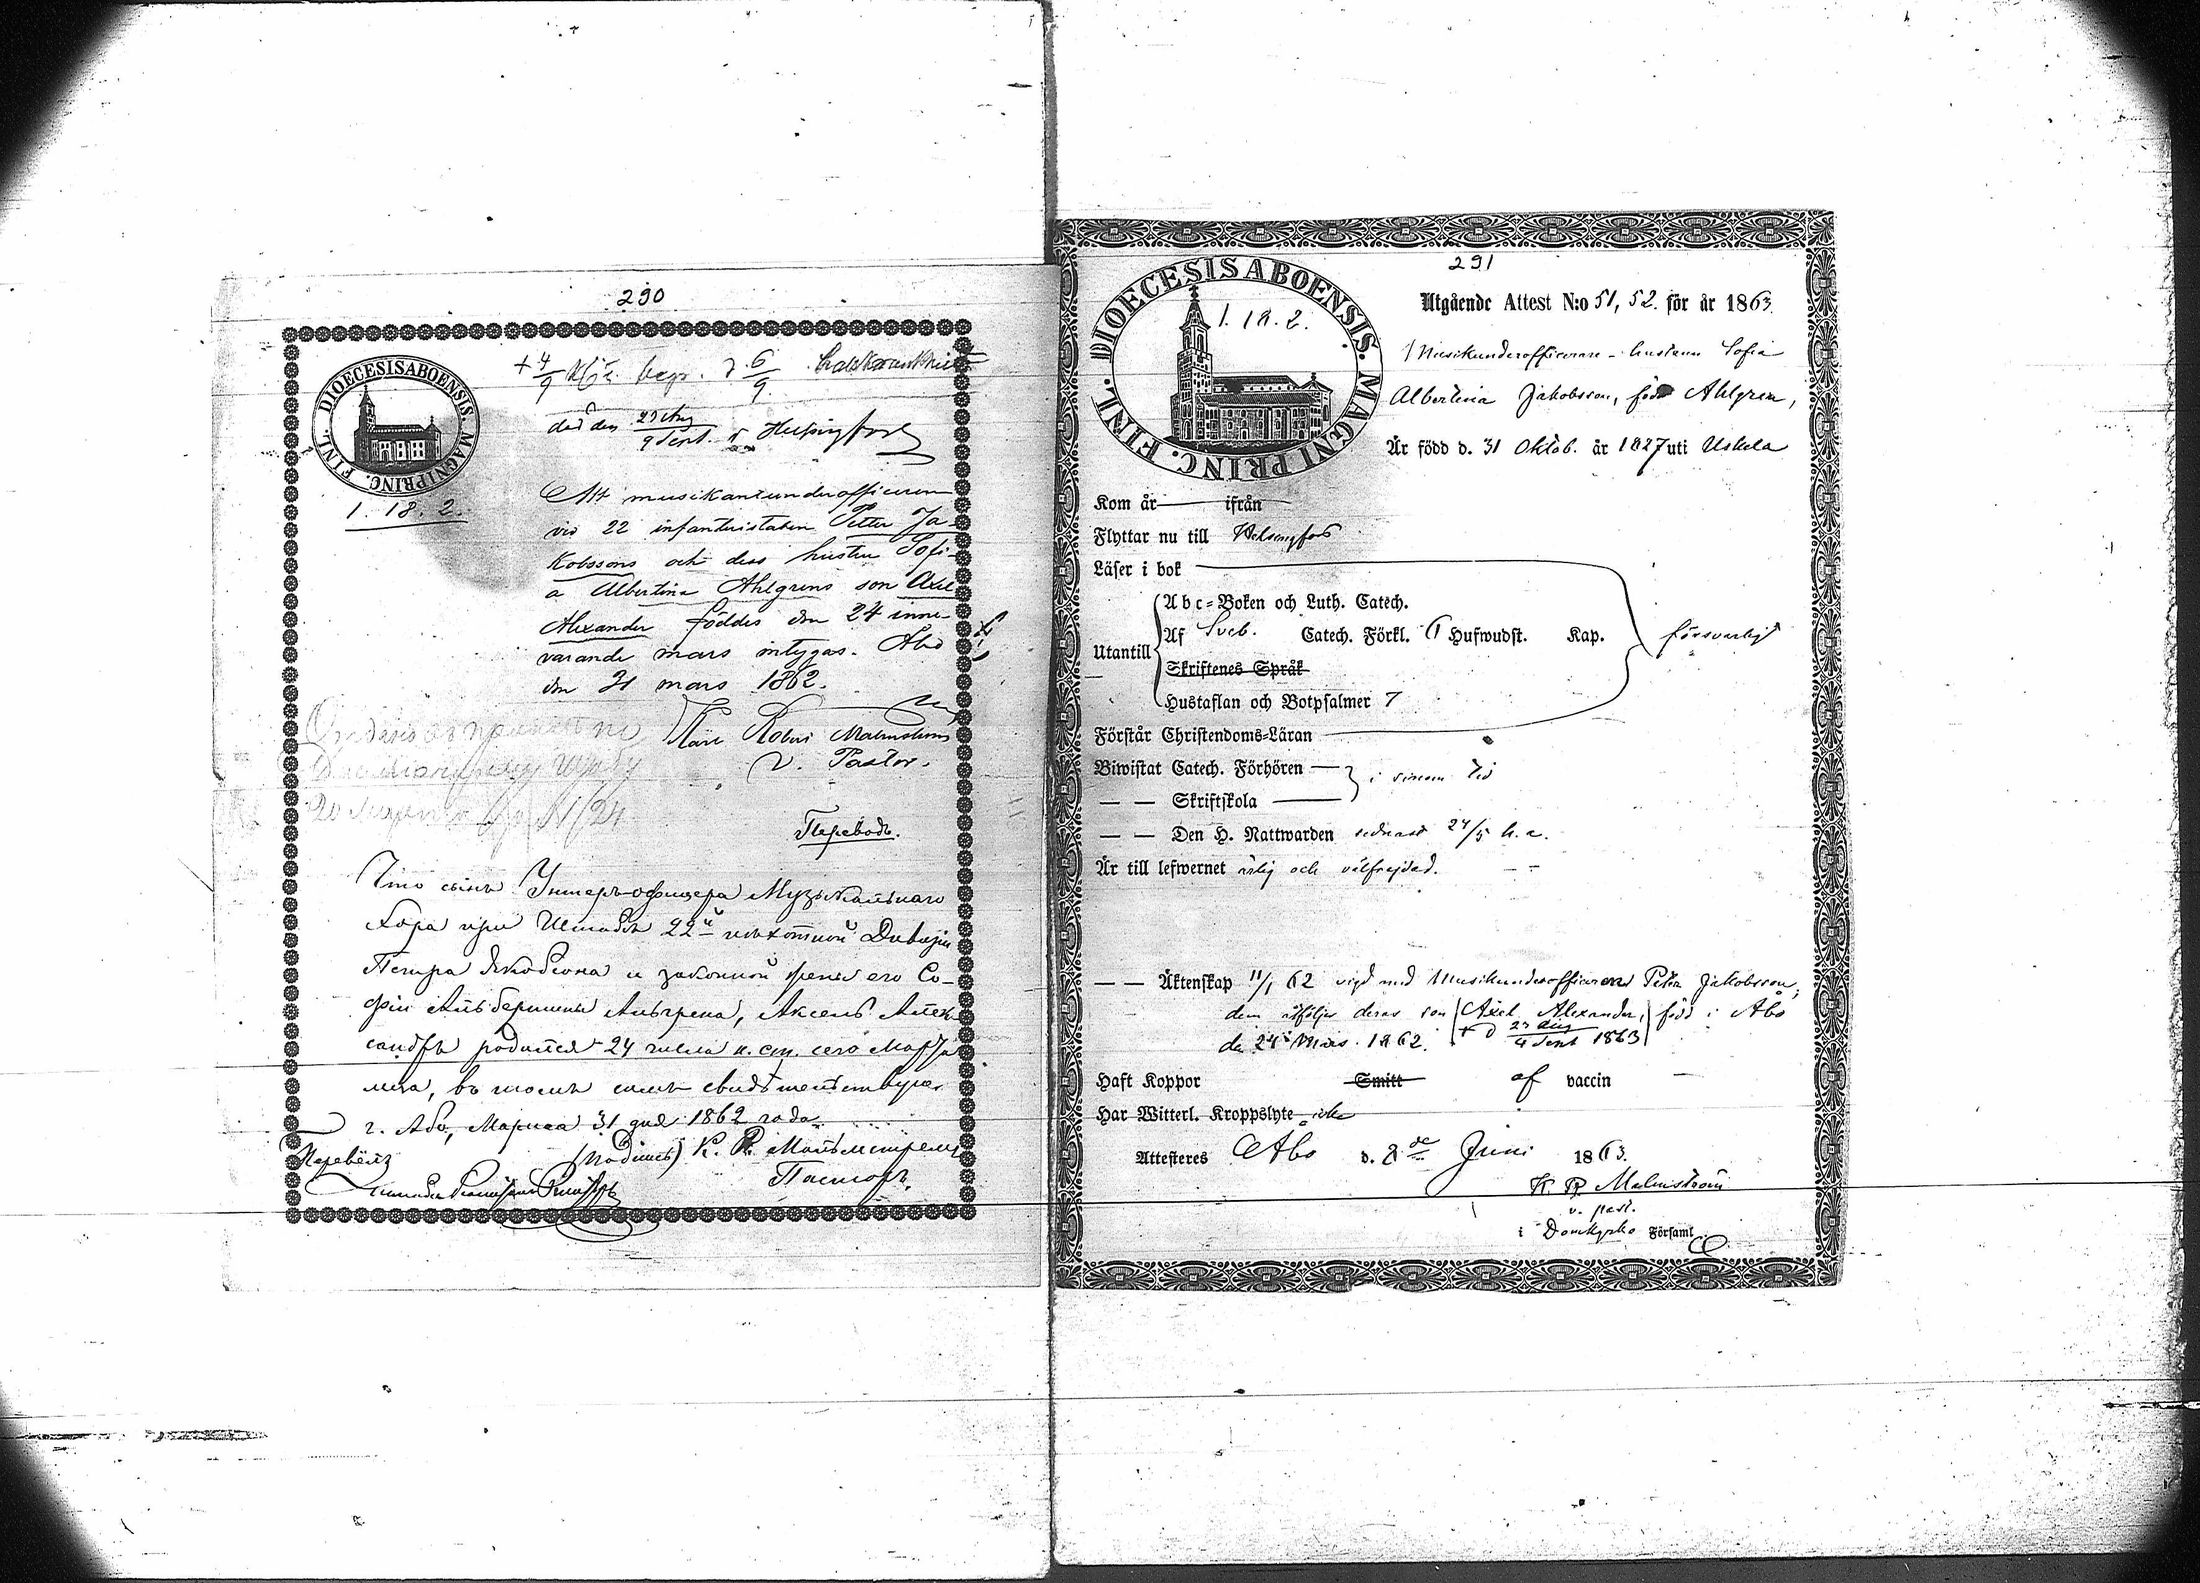 290
DIOECESIS ABOENSIS. MAGNI PRINC. FINL.
1. 18. 2.
+ 4/9 begr. d. 6/9
död den 23 Aug / 4 Sept. i Helsingfors
Att musikantunderofficeren
vid 22 infanteristaben Petter Ja-
kobssons och dess hustru Sofi-
a Albertina Ahlgrens son Axel
Alexander föddes den 24 inne-
varande mars intygas. Åbo
den 31 mars 1862.
Karl Robert Malmström
v. Pastor.
Переводъ.
Что сынъ Унтеръ-офицера Музыкальнаго
Хора при Штабѣ 22й пѣхотной Дивизіи
Петра Якобсона и законной жены его Со-
фіи Альбертины Альгрена, Аксель Алек
сандръ родился 24 числа н. ст. сего Марта
мца, въ томъ симъ свидѣтельствую.
г. Або, Марта 31 дня 1862 года
(подписъ) К. Р. Мальмстремъ
Пасторъ.
Перевёлъ
291
DIOECESIS ABOENSIS. MAGNI PRINC. FINL.
1. 18. 2.
Utgående Attest N:o 51, 52. för år 1863.
Musikunderofficerare-hustrun Sofia
Albertina Jakobsson, född Ahlgren,
Är född d. 31 Oktob. år 1827 uti Uskela
Kom år ifrån
Flyttar nu till Helsingfors
Läser i bok
Utantill
Abc-Boken och Luth. Catech.
Af Sveb. Catech. Förkl. 6 Hufwudst. Kap.
försvarligt
Skriftenes Språk
Hustaflan och Botpsalmer 7
Förstår Christendoms-Läran
Biwistat Catech. Förhören
i sinom tid
— — Skriftskola
— — Den H. Nattwarden sednast 24/5 h. a.
Är till lefwernet ärlig och välfrejdad.
— — Äktenskap 11/1 62 vigd med Musikunderofficeren Peter Jakobsson,
dem åtföljer deras son (Axel Alexander,) född i Åbo
den 24 Mars 1862. + d. 23 Aug / 4 Sept 1863
Haft Koppor Smitt af vaccin
Har Witterl. Kroppslyte icke
Attesteres Åbo d. 8de Juni 1863.
K. R. Malmström
v. past.
i Domkyrko Församl.